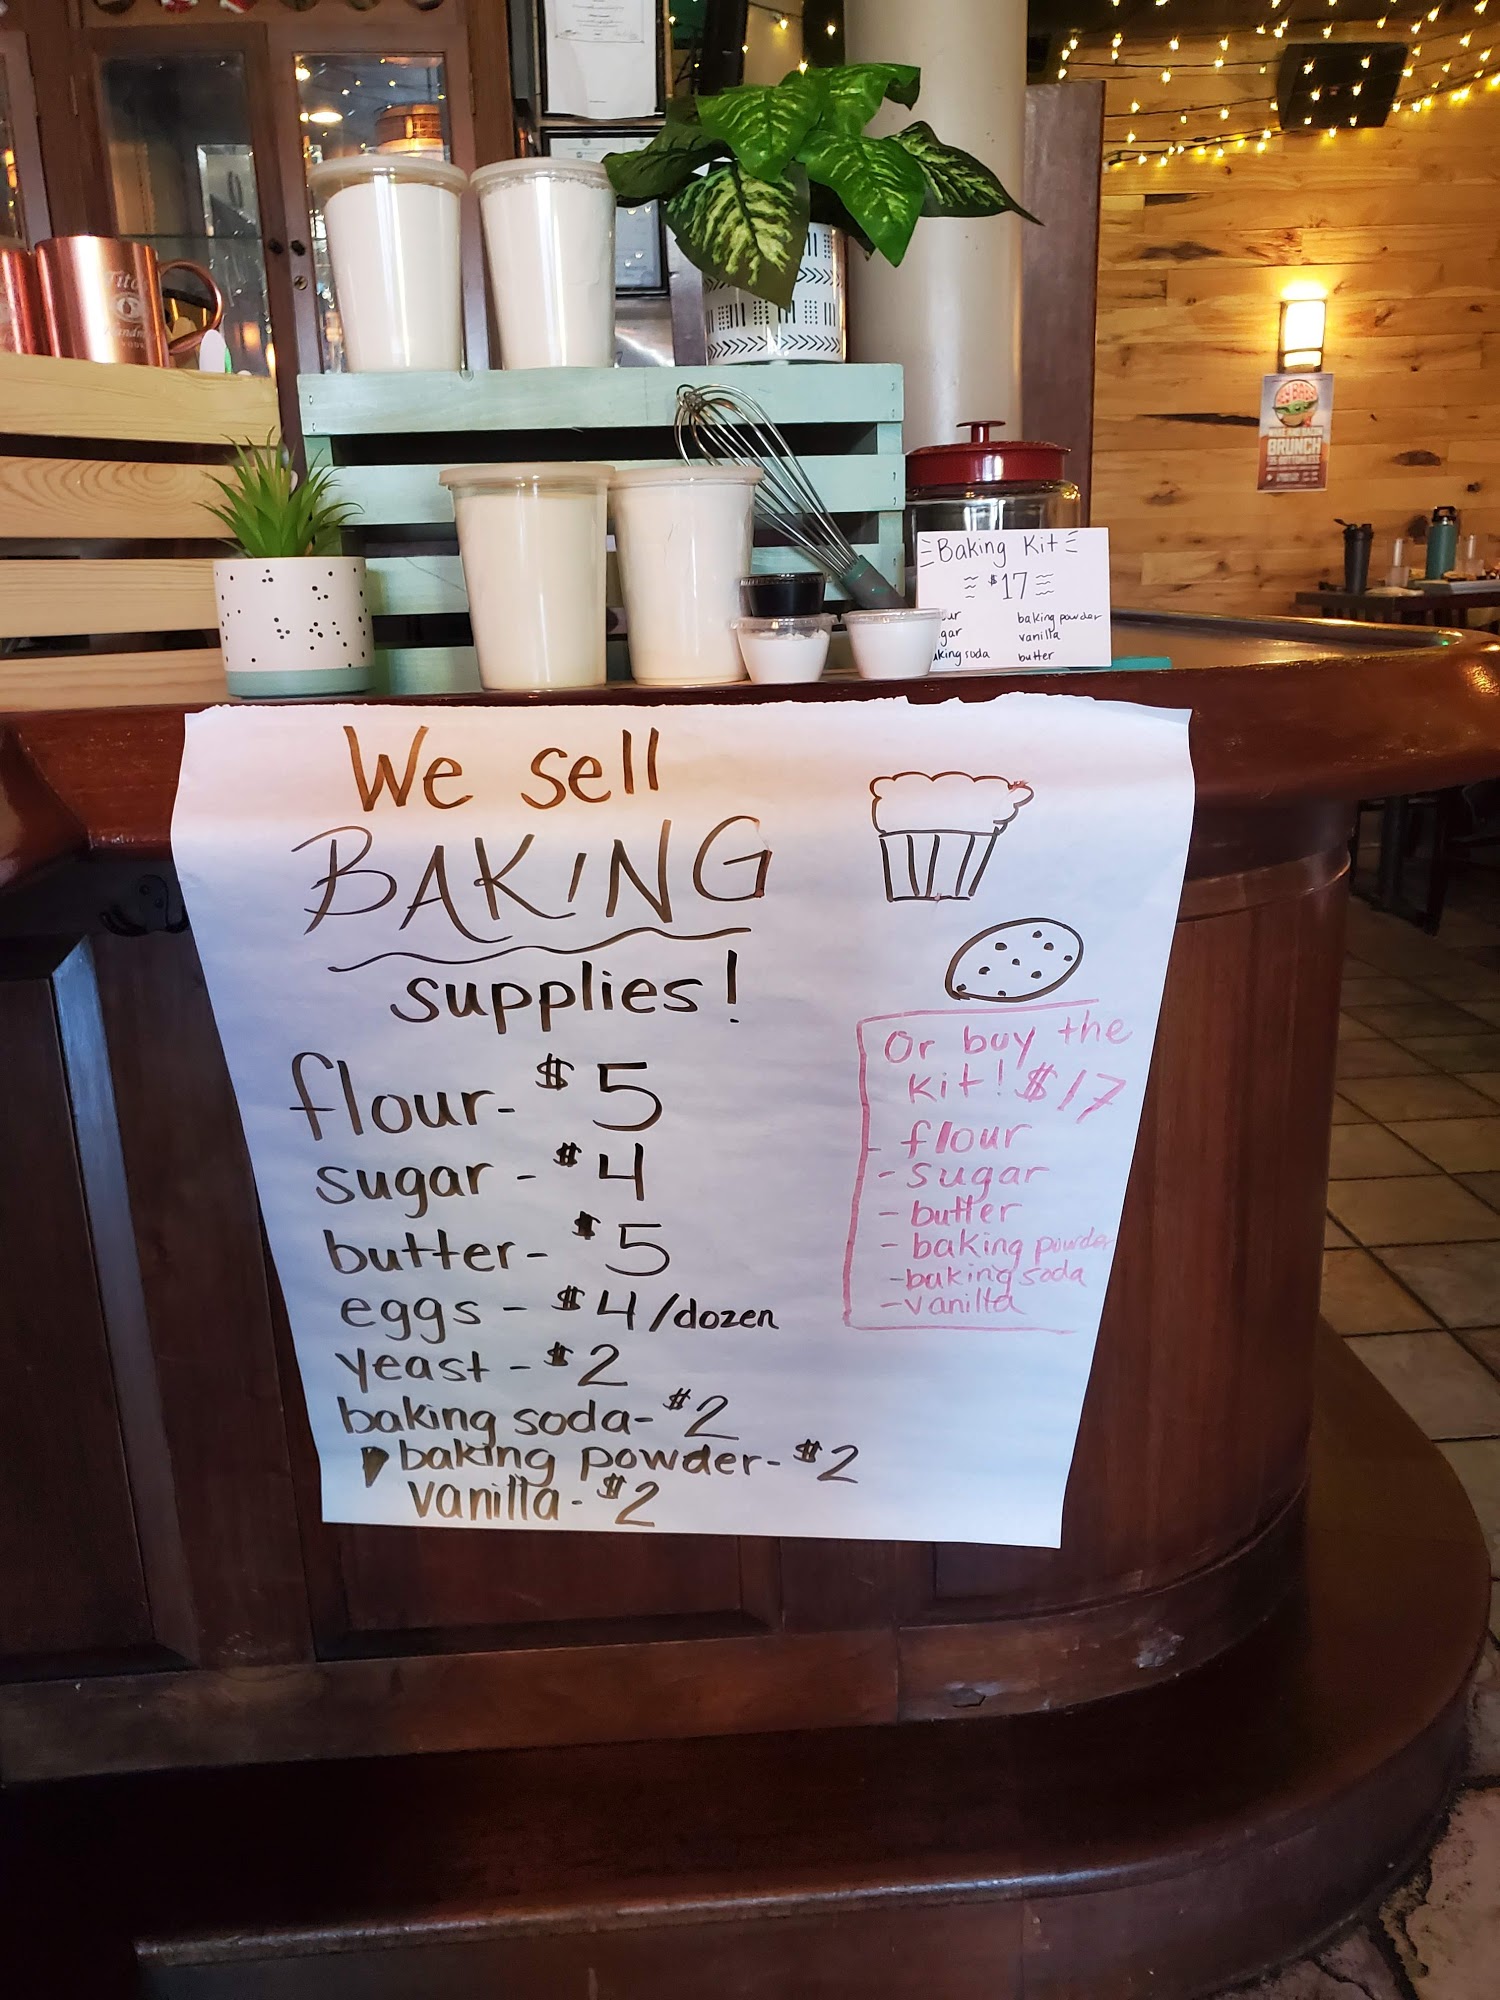 Tito's
BRUNCH
Baking Kit
$17
baking powder
vanilla
baking soda butter
We sell
BAKING
supplies!
flour- $5
sugar - $4
butter- $5
eggs - $4/dozen
yeast - $2
baking soda- $2
baking powder- $2
vanilla- $2
Or buy the
kit! $17
- flour
- sugar
- butter
- baking powder
- baking soda
- vanilla